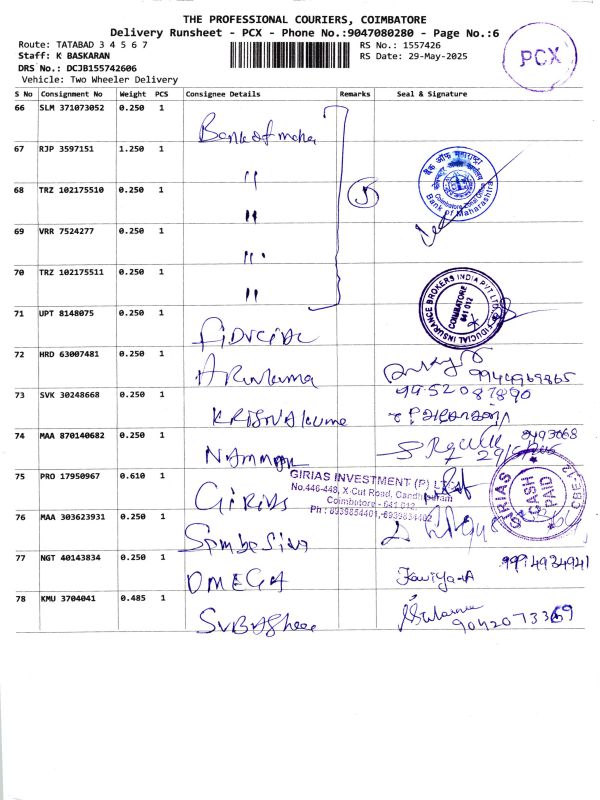 THE PROFESSIONAL COURIERS, COIMBATORE
Delivery Runsheet - PCX - Phone No.:9047080280 - Page No.:6
Route: TATABAD 3 4 5 6 7
RS No.: 1557426
Staff: K BASKARAN
RS Date: 29-May-2025
DRS No.: DCJB155742606
Vehicle: Two Wheeler Delivery
PCX
S No Consignment No Weight PCS Consignee Details Remarks Seal & Signature
66 SLM 371073052 0.250 1
Bank of maha
67 RJP 3597151 1.250 1
"
बैंक ऑफ महाराष्ट्र
Coimbatore Zonal Office
Bank of Maharashtra
68 TRZ 102175510 0.250 1
5
"
69 VRR 7524277 0.250 1
"
70 TRZ 102175511 0.250 1
"
FIDUCIAL INSURANCE BROKERS INDIA PVT LTD
COIMBATORE
641 012
71 UPT 8148075 0.250 1
72 HRD 63007481 0.250 1
9944969865
73 SVK 30248668 0.250 1
9452087890
74 MAA 870140682 0.250 1
75 PRO 17950967 0.610 1
GIRIAS
GIRIAS INVESTMENT (P) LTD
No.446-448, X-Cut Road, Gandhipuram
Coimbatore - 641 012.
Ph : 6939854401,
GIRIAS
CASH
PAID
76 MAA 303623931 0.250 1
77 NGT 40143834 0.250 1
OMEGA
9994934941
78 KMU 3704041 0.485 1